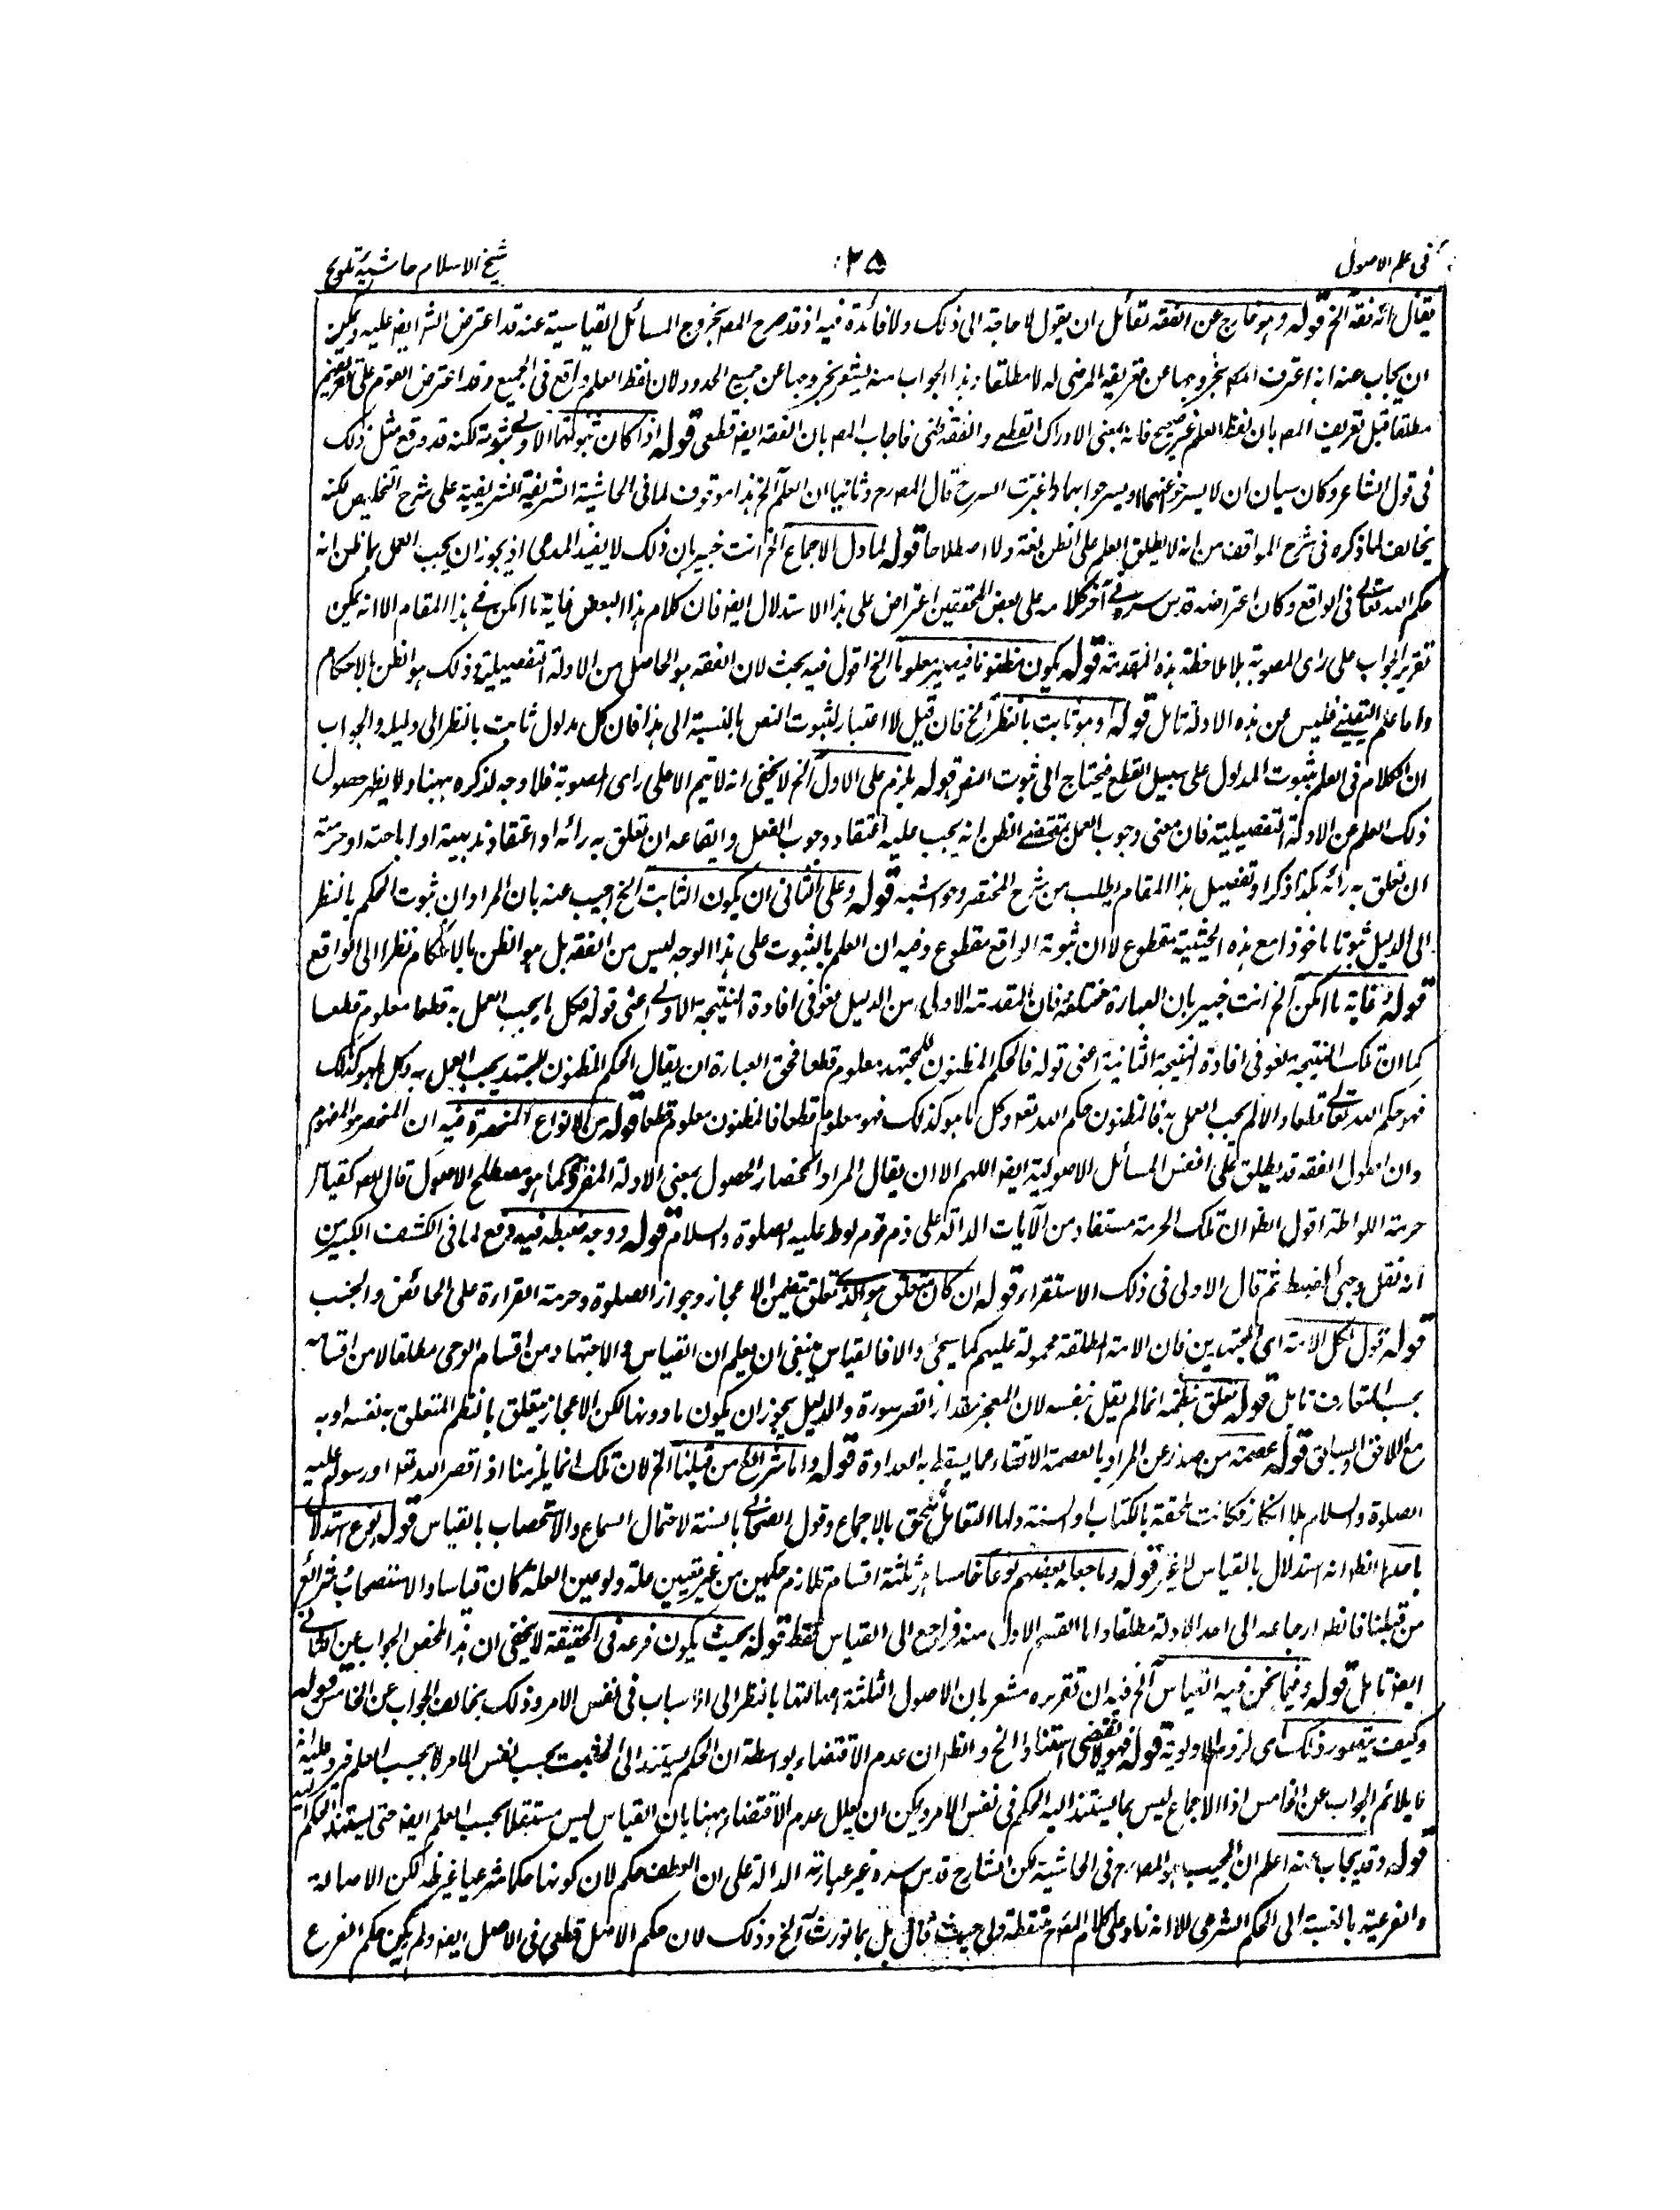 فى علم الاصول ٢٥ شيخ الاسلام حاشية تلويح
يقال انه فقه الخ قوله وهو خارج عن الفقه لقائل ان يقول لا حاجة الى ذلك ولا فائدة فيه اذ قد صرح المصـ بخروج المسائل القياسية عنه قد اعترض الشـ ايضـ عليه ويمكن
ان يجاب عنه انه اعترف المصـ بخروجها عن تعريفه المرضى له لا مطلقا وهذا الجواب منه يشعر بخروجها عن جميع الحدود لان لفظ العلم واقع فى الجميع وقد اعترض القوم على تعريفهم
مطلقا قبل تعريف المصـ بان لفظ العلم غير صحيح فانه بمعنى الادراك القطعى والفقه ظنى فاجاب المصـ بان الفقه ايضـ قطعى قوله اذا كان ثبوتها الاولى ثبوته لكنه قد وقع مثل ذلك
فى قول الشاعر وكان سيان ان لا يسرحوا غنما او يسرحوا بها واغبرت السرح قال المصـ رح وثانيا ان العلم الخ هذا موقوف لما فى الحاشية الشريفة الشريفية على شرح التلخيص لكنه
يخالف لما ذكره فى شرح المواقف من انه لا يطلق العلم على الظن لغة ولا اصطلاحا قوله لما دل الاجماع الخ انت خبير بان ذلك لا يفيد المدعى اذ يجوز ان يجب العمل بما ظن انه
حكم الله تعالى فى الواقع وكان اعتراضه قدس سره فى آخر كلامه على بعض المحققين اعتراض على هذا الاستدلال ايضـ فان كلام هذا البعض غاية ما امكن فى هذا المقام الا انه يمكن
تقرير الجواب على راى المصوبة بلا ملاحظة هذه المقدمة قوله يكون مظنونا فيصير معلوما الخ اقول فيه بحث لان الفقه هو الحاصل من الادلة التفصيلية وذلك هو الظن بالاحكام
واما علم اليقينى فليس من هذه الادلة تامل قوله وهو ثابت بالنظر الخ فان قيل لا اعتبار لثبوت النص بالنسبة الى هذا فان كل مدلول ثابت بالنظر الى دليله والجواب
ان الكلام فى العلم بثبوت المدلول على سبيل القطع فيحتاج الى ثبوت النص قوله يلزم على الاول الخ لا يخفى انه لا يتم الا على راى المصوبة فلا وجه لذكره ههنا ولا يظهر حصول
ذلك العلم من الادلة التفصيلية فان معنى وجوب العمل بمقتضى الظن انه يجب عليه اعتقاد وجوب الفعل وايقاعه ان تعلق به رائه او اعتقاد ندبيته او اباحته او حرمته
ان تعلق به رائه هكذا ذكرا وتفصيل هذا المقام يطلب من شرح المختصر وحواشيه قوله وعلى الثانى ان يكون الثابت الخ اجيب عنه بان المراد ان ثبوت الحكم بالنظر
الى الدليل ثبوتا ماخوذا مع هذه الحيثية مقطوع لا ان ثبوته الواقع مقطوع وفيه ان العلم بالثبوت على هذا الوجه ليس من الفقه بل هو الظن بالاحكام نظرا الى الواقع
قوله وغاية ما امكن الخ انت خبير بان العبارة مختلفة فان المقدمة الاولى من الدليل لغو فى افادة النتيجة الاولى اعنى قوله فكل ما يجب العمل به قطعا معلوم قطعا
كما ان تلك النتيجة لغو فى افادة النتيجة الثانية اعنى قوله فالحكم المظنون للمجتهد معلوم قطعا فحق العبارة ان يقال الحكم المظنون للمجتهد يجب العمل به وكل ما هو كذلك
فهو حكم الله تعالى قطعا والا لم يجب العمل به فالمظنون حكم الله تعـ وكل ما هو كذلك فهو معلوم قطعا فالمظنون معلوم قطعا قوله من الانواع المنحصرة فيه ان المنحصر هو المفهوم
وان اصول الفقه قد يطلق على انفس المسائل الاصولية ايضـ اللهم الا ان يقال المراد انحصار الحصول بمعنى الادلة المفرقة كما هو مصطلح الاصول قال المصـ كقياس
حرمة اللواطة اقول الظـ ان تلك الحرمة مستفاد من الآيات الدالة على ذم قوم لوط عليه الصلوة والسلام قوله ووجه ضبطه فيه دفع لما فى الكشف الكبير من
انه نقل وجهى الضبط ثم قال الاولى فى ذلك الاستقراء قوله ان كان متعلق هو الذى تعلق بنظمه الاعجاز وجواز الصلوة وحرمة القراءة على الحائض والجنب
قوله قول لكل الامة اى المجتهدين فان الامة المطلقة محمولة عليهم كما سيجئ والا فالقياس ينبغى ان يعلم ان القياس والاجتهاد من اقسام الوحى مطلقا لا من اقسامه
بحسب المتعارف تامل قوله تعلق بنظمه انما لم يقل بنفسه لان المعجز مقدار اقصر سورة والدليل يجوز ان يكون ما دونها لكن الاعجاز يتعلق بالنظم المتعلق به نفسه او به
مع اللاحق والسابق قوله عصمته من صدر عن المراد بالعصمة الاتقاء عما يسقط به العدادة قوله واما شرائع من قبلنا الخ لان تلك انما يلزمنا اذ اقصر الله تعـ او رسوله عليه
الصلوة والسلام بلا انكار فكانت ملحقة بالكتاب او السنة ولها التعامل ملحق بالاجماع وقول الصحابى بالسنة لاحتمال السماع والاستصحاب بالقياس قوله نوع استدلال
باحدها الظـ انه استدلال بالقياس لا غير قوله وما جعله بعضهم نوعا خامسا هو ثلثة اقسام تلازم حكمين من غير تعيين علة ولو عين العلة كان قياسا والاستصحاب شرائع
من قبلنا فانظر ارجاعه الى احد الادلة مطلقا واما القسم الاول منه فراجع الى القياس فقط قوله بحيث يكون فرعه فى الحقيقة لا يخفى ان هذا ملخص الجواب عن الثانى
ايضـ تامل قوله وفيما نحن فيه القياس الخ فيه ان تقريره مشعر بان الاصول الثلثة اصالتها بالنظر الى الاسباب فى نفس الامر وذلك يخالف الجواب عن الخامس قوله
وكيف يتصور ذلك اى لزوم الاولوية قوله فهو لا يقتضى استنادا الخ والظـ ان عدم الاقتضاء بواسطة ان الحكم يستند الى المثبت بحسب نفس الامر لا بحسب العلم فيرد عليه انه
ما يلائم الجواب عن الخامس اذ الاجماع ليس بما يستند اليه الحكم فى نفس الامر ويمكن ان يعلل عدم الاقتضاء ههنا بان القياس ليس مستقلا بحسب العلم ايضـ حتى يستند الحكم اليه
قوله وقد يجاب عنه اعلم ان المجيب هو المصـ رح فى الحاشية لكن الشارح قدس سره غير عبارته الدالة على ان العطف حكم لان كونها حكما شرعيا غير ظـ لكن الاصالة
والفرعية بالنسبة الى الحكم الشرعى الا انه زاد على كلام القوم حيث قال بل بما نورث الخ وذلك لان حكم الاصل قطعى فى الاصل ايضـ ولم يكن حكم الفرع